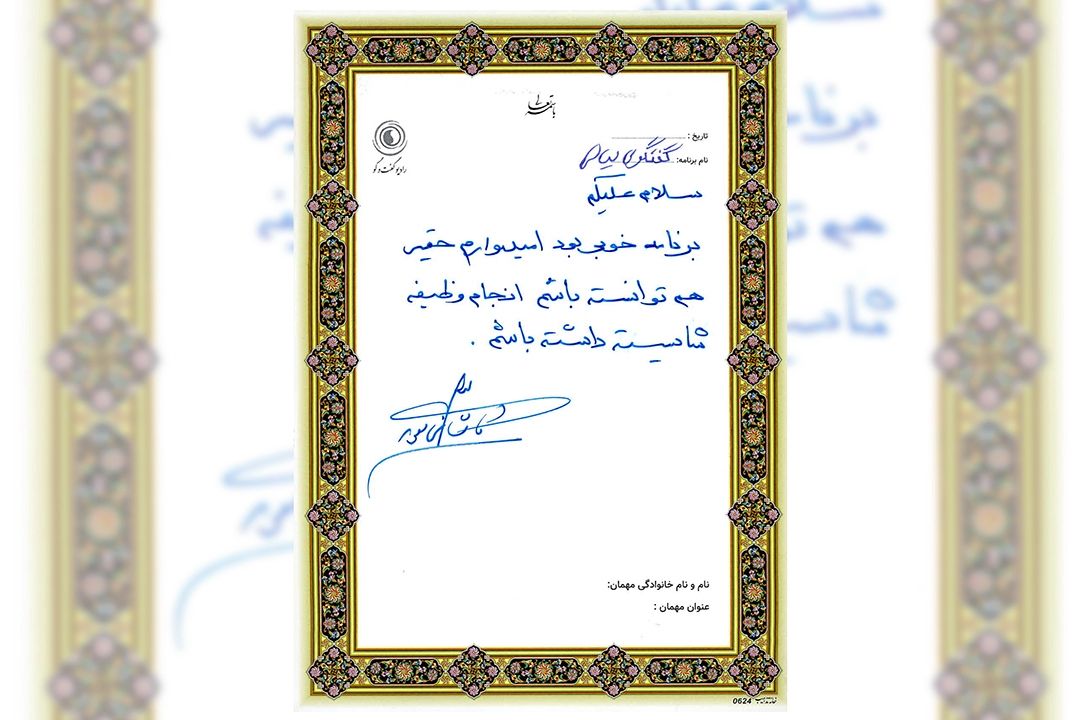 باسمه تعالی
رادیو گفت و گو
تاریخ :
نام برنامه: گفتگوی
سلام علیکم
برنامه خوبی بود امیدوارم حقیر
هم توانسته باشم انجام وظیفه
شایسته داشته باشم .
نام و نام خانوادگی مهمان:
عنوان مهمان :
0624